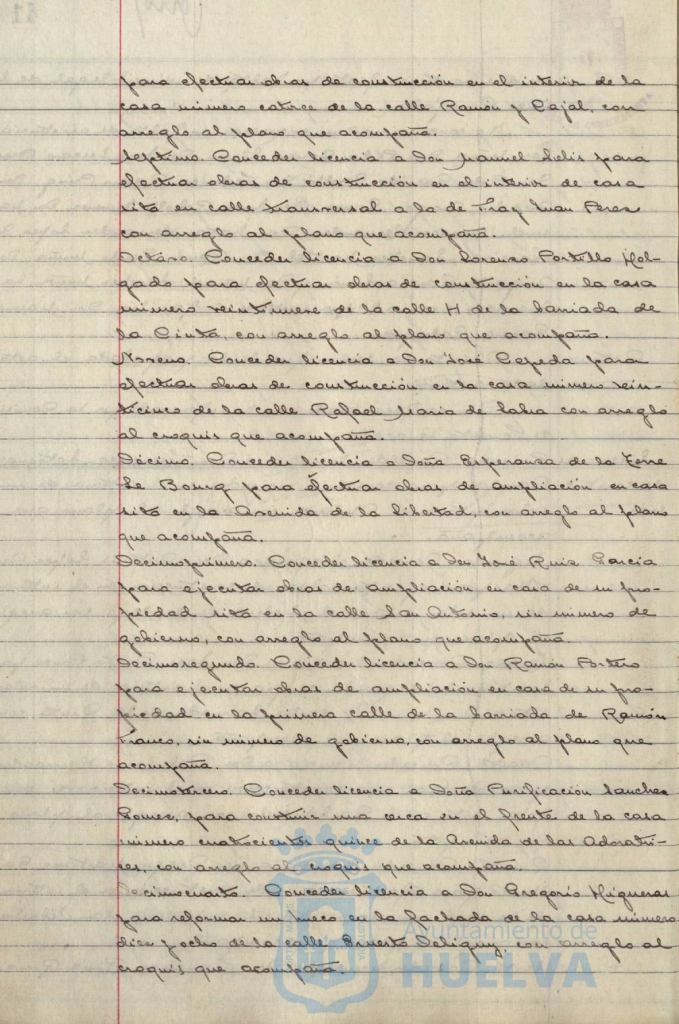 para efectuar obras de construcción en el interior de la
casa número catorce de la calle Ramón y Cajal, con
arreglo al plano que acompaña.
Septimo. Conceder licencia a Don Manuel Solis para
efectuar obras de construcción en el interior de casa
sita en calle transversal a la de Fray Juan Perez
con arreglo al plano que acompaña.
Octavo. Conceder licencia a Don Lorenzo Portillo Hol-
gado para efectuar obras de construcción en la casa
número veintinueve de la calle H de la barriada de
la Cinta, con arreglo al plano que acompaña.
Noveno. Conceder licencia a Don José Cepeda para
efectuar obras de construcción en la casa número vein-
ticinco de la calle Rafael Maria de Labra con arreglo
al croquis que acompaña.
Décimo. Conceder licencia a Doña Esperanza de la Torre
Le Bourg para efectuar obras de ampliación en casa
sita en la Avenida de la Libertad, con arreglo al plano
que acompaña.
Decimoprimero. Conceder licencia a Don José Ruiz Garcia
para ejecutar obras de ampliación en casa de su pro-
piedad sita en la calle San Antonio, sin número de
gobierno, con arreglo al plano que acompaña.
Decimosegundo. Conceder licencia a Don Ramón Portero
para ejecutar obras de ampliación en casa de su pro-
piedad en la primera calle de la barriada de Ramón
Franco, sin número de gobierno, con arreglo al plano que
acompaña.
Decimotercero. Conceder licencia a Doña Purificación Sanchez
Gomez, para construir una cerca en el frente de la casa
número cuatrocientos quince de la Avenida de las Adoratri-
ces, con arreglo al croquis que acompaña.
Decimocuarto. Conceder licencia a Don Gregorio Higueras
para reformar un hueco en la fachada de la casa número
diez y ocho de la calle Ernesto Deligny, con arreglo al
croquis que acompaña.
Ayuntamiento de
HUELVA